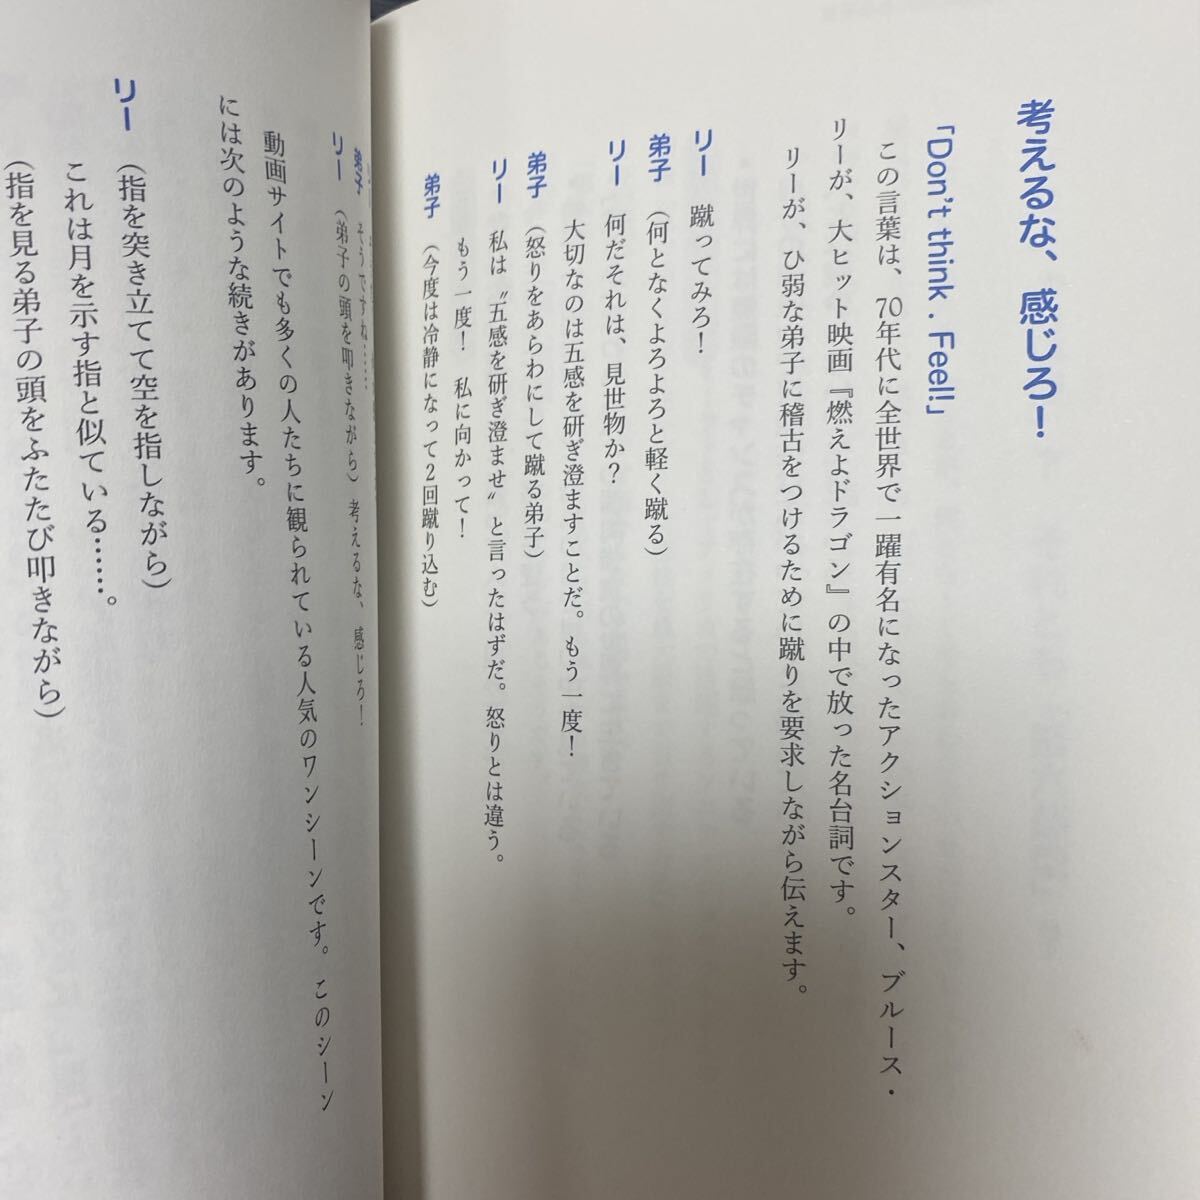 考えるな、感じろ！
「Don't think . Feel!」
この言葉は、70年代に全世界で一躍有名になったアクションスター、ブルース・
リーが、大ヒット映画『燃えよドラゴン』の中で放った名台詞です。
リーが、ひ弱な弟子に稽古をつけるために蹴りを要求しながら伝えます。
リー　蹴ってみろ！
弟子　（何となくよろよろと軽く蹴る）
リー　何だそれは、見世物か？
大切なのは五感を研ぎ澄ますことだ。もう一度！
弟子　（怒りをあらわにして蹴る弟子）
リー　私は〝五感を研ぎ澄ませ〟と言ったはずだ。怒りとは違う。
もう一度！　私に向かって！
弟子　（今度は冷静になって2回蹴り込む）
弟子　そうですね……
リー　（弟子の頭を叩きながら）考えるな、感じろ！
動画サイトでも多くの人たちに観られている人気のワンシーンです。このシーン
には次のような続きがあります。
リー　（指を突き立てて空を指しながら）
これは月を示す指と似ている……。
（指を見る弟子の頭をふたたび叩きながら）